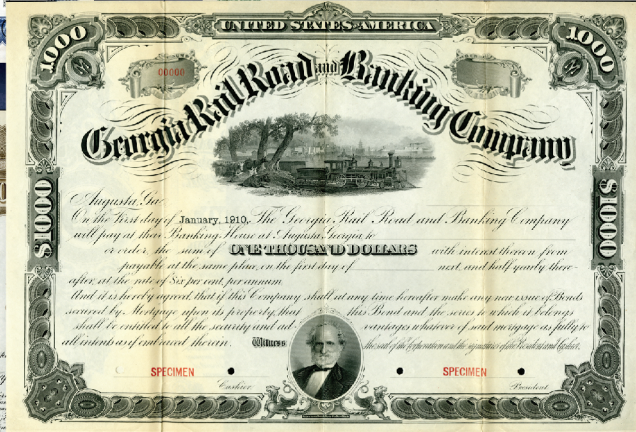 UNITED STATES OF AMERICA
1000
1000
00000
Georgia Rail Road and Banking Company
$1000
$1000
Augusta, Ga.
On the First day of January, 1910, The Georgia Rail Road and Banking Company
will pay at their Banking House at Augusta Georgia to
or order, the sum of ONE THOUSAND DOLLARS with interest thereon from
payable at the same place, on the first day of next, and half yearly there-
after, at the rate of Six per cent, per annum.
And it is hereby agreed, that if this Company shall at any time hereafter make any new issue of Bonds
secured by Mortgage upon its property, that this Bond and the series to which it belongs
shall be entitled to all the security and ad- vantages whatever of said mortgage as fully to
all intents as if embraced therein. Witness the seal of the Corporation and the signatures of the President and Cashier.
SPECIMEN
SPECIMEN
Cashier
President